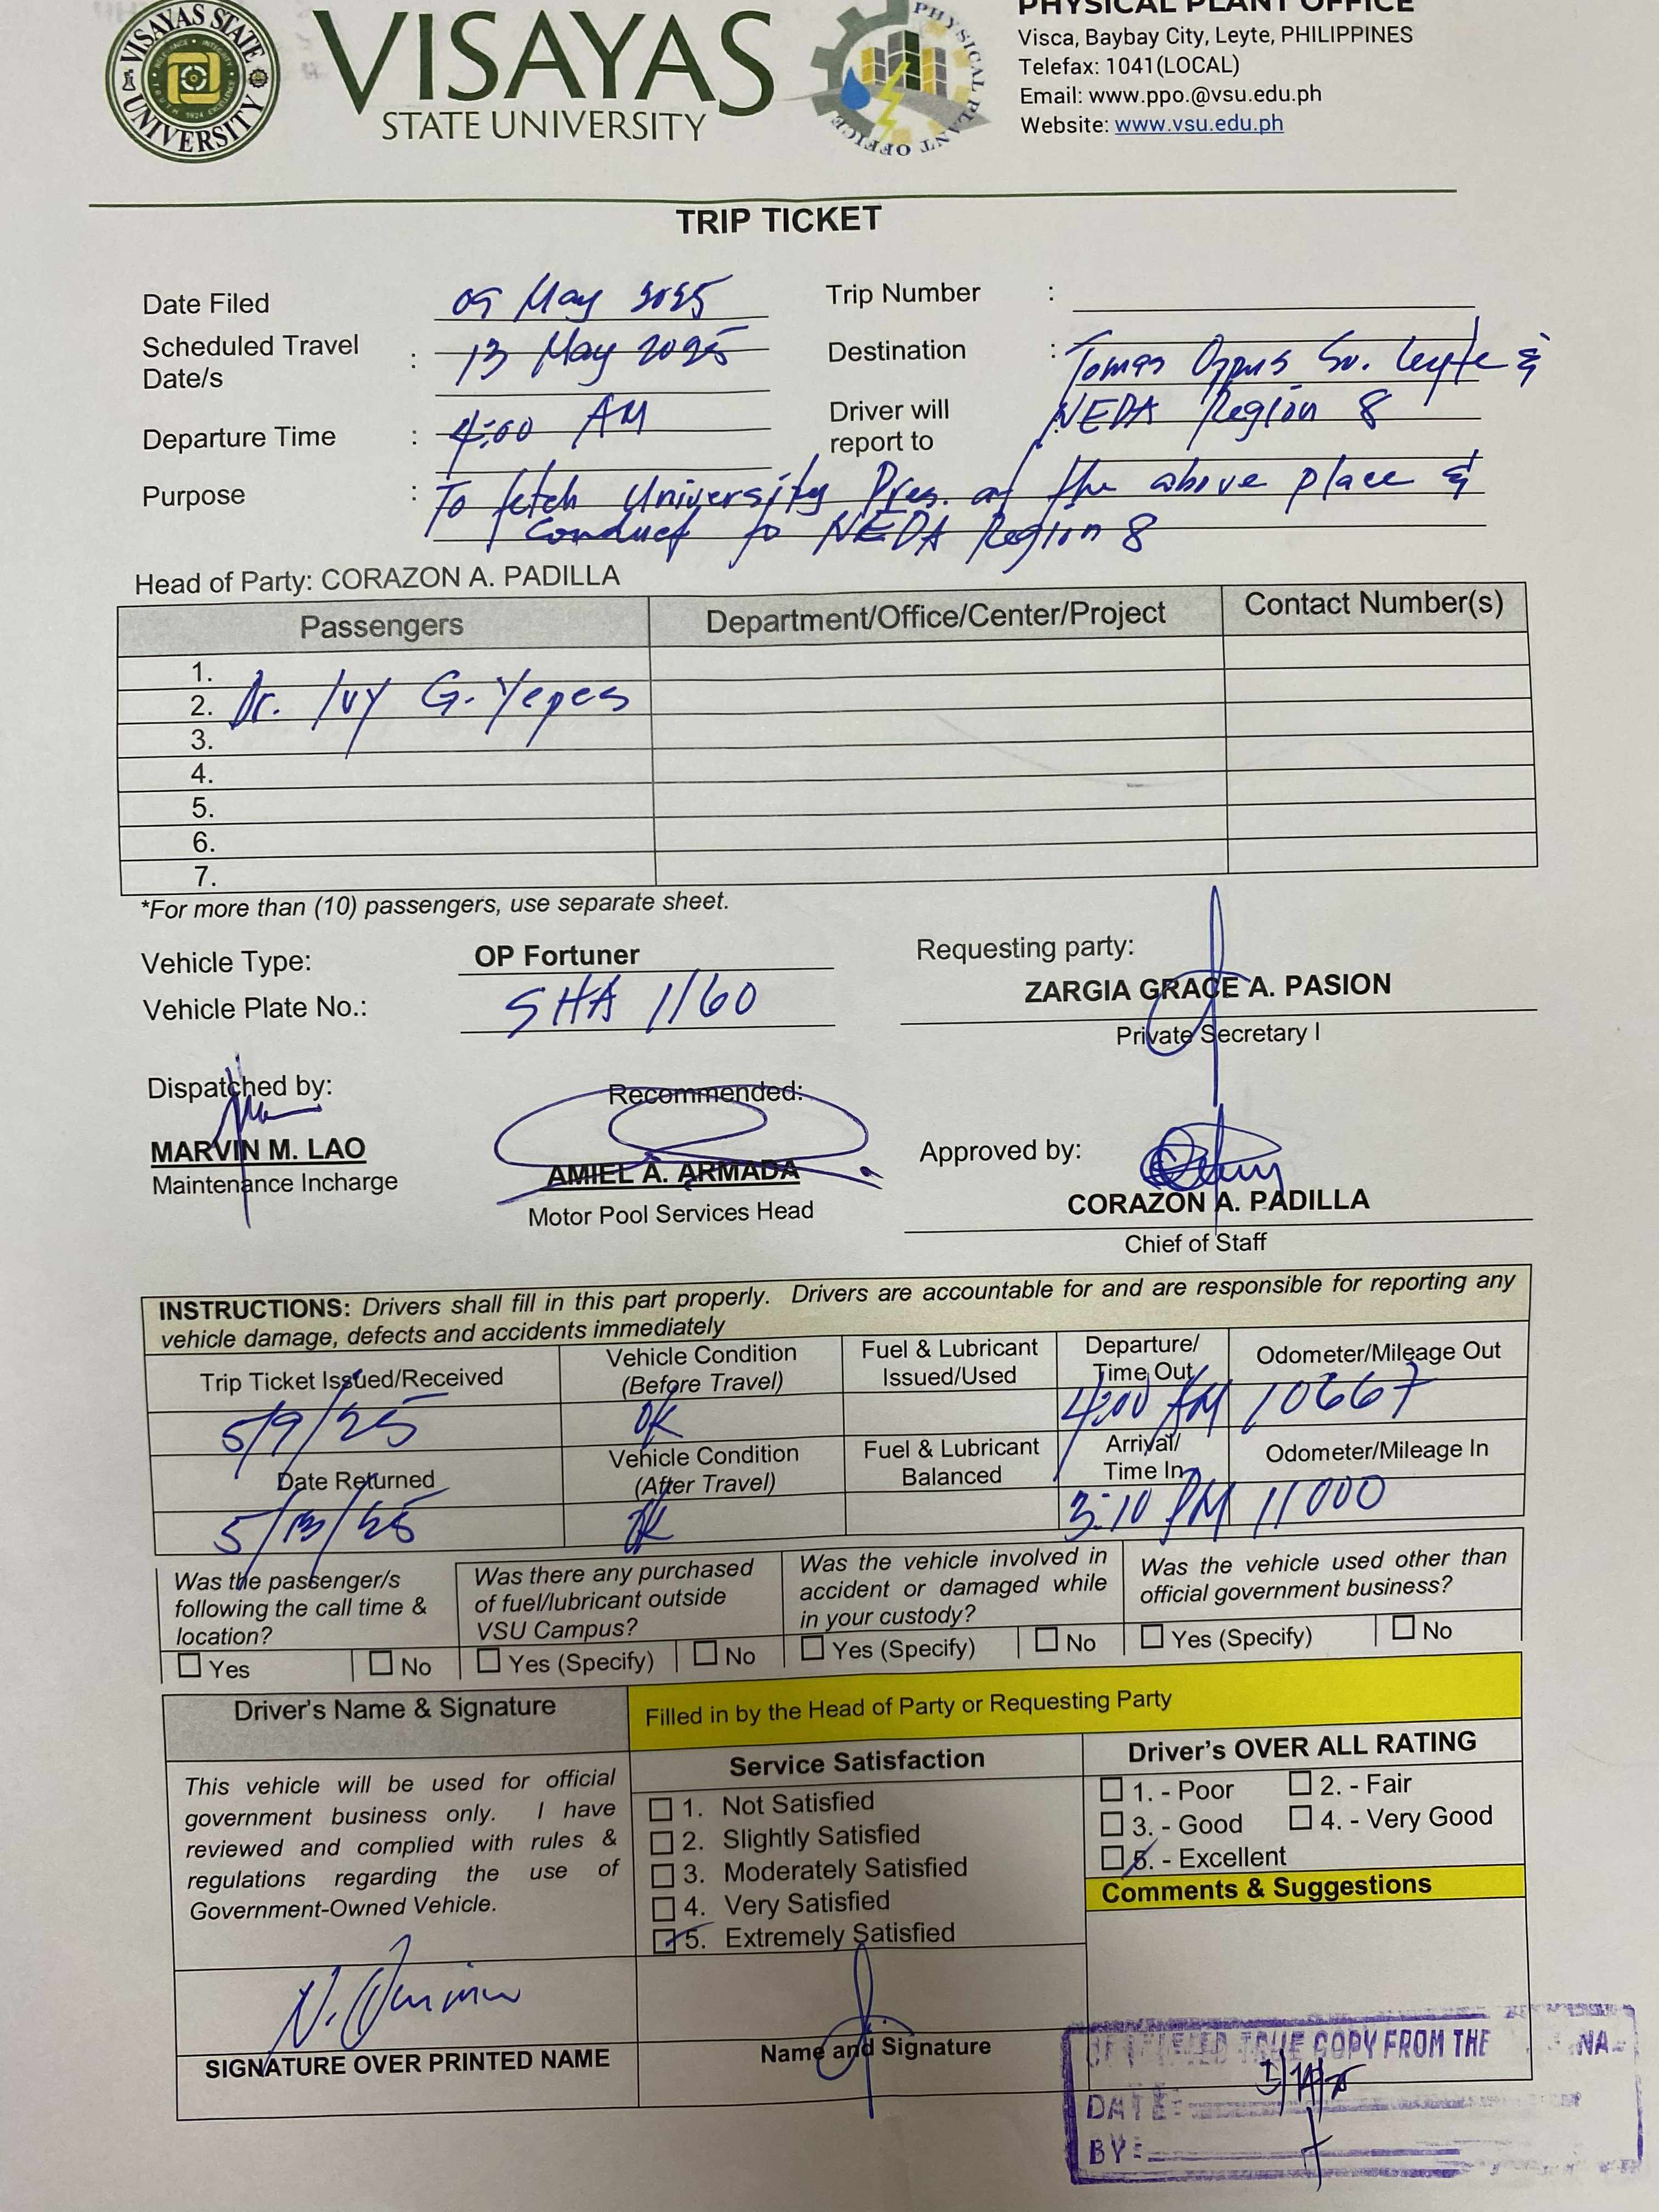 VISAYAS STATE UNIVERSITY
VISAYAS
STATE UNIVERSITY
PHYSICAL PLANT OFFICE
PHYSICAL PLANT OFFICE
Visca, Baybay City, Leyte, PHILIPPINES
Telefax: 1041(LOCAL)
Email: www.ppo.@vsu.edu.ph
Website: www.vsu.edu.ph
TRIP TICKET
Date Filed 09 May 2025 Trip Number :
Scheduled Travel Date/s : 13 May 2025 Destination : Tomas Oppus So. Leyte &
Departure Time : 4:00 AM Driver will report to NEDA Region 8
Purpose : To fetch University Pres. at the above place &
Conduct to NEDA Region 8
Head of Party: CORAZON A. PADILLA
Passengers Department/Office/Center/Project Contact Number(s)
1.
2. Dr. Ivy G. Yepes
3.
4.
5.
6.
7.
*For more than (10) passengers, use separate sheet.
Vehicle Type: OP Fortuner
Vehicle Plate No.: SHA 1160
Requesting party:
ZARGIA GRACE A. PASION
Private Secretary I
Dispatched by:
MARVIN M. LAO
Maintenance Incharge
Recommended:
AMIEL A. ARMADA
Motor Pool Services Head
Approved by:
CORAZON A. PADILLA
Chief of Staff
INSTRUCTIONS: Drivers shall fill in this part properly. Drivers are accountable for and are responsible for reporting any
vehicle damage, defects and accidents immediately
Trip Ticket Issued/Received Vehicle Condition (Before Travel) Fuel & Lubricant Issued/Used Departure/ Time Out Odometer/Mileage Out
5/9/25 OK 4:00 AM 10667
Date Returned Vehicle Condition (After Travel) Fuel & Lubricant Balanced Arrival/ Time In Odometer/Mileage In
5/13/25 OK 3:10 PM 11000
Was the passenger/s
following the call time &
location?
Yes No
Was there any purchased
of fuel/lubricant outside
VSU Campus?
Yes (Specify) No
Was the vehicle involved in
accident or damaged while
in your custody?
Yes (Specify) No
Was the vehicle used other than
official government business?
Yes (Specify) No
Driver's Name & Signature
Filled in by the Head of Party or Requesting Party
This vehicle will be used for official
government business only. I have
reviewed and complied with rules &
regulations regarding the use of
Government-Owned Vehicle.
SIGNATURE OVER PRINTED NAME
Service Satisfaction
1. Not Satisfied
2. Slightly Satisfied
3. Moderately Satisfied
4. Very Satisfied
5. Extremely Satisfied
Name and Signature
Driver's OVER ALL RATING
1. - Poor 2. - Fair
3. - Good 4. - Very Good
5. - Excellent
Comments & Suggestions
TRUE COPY FROM THE
DATE:
BY: